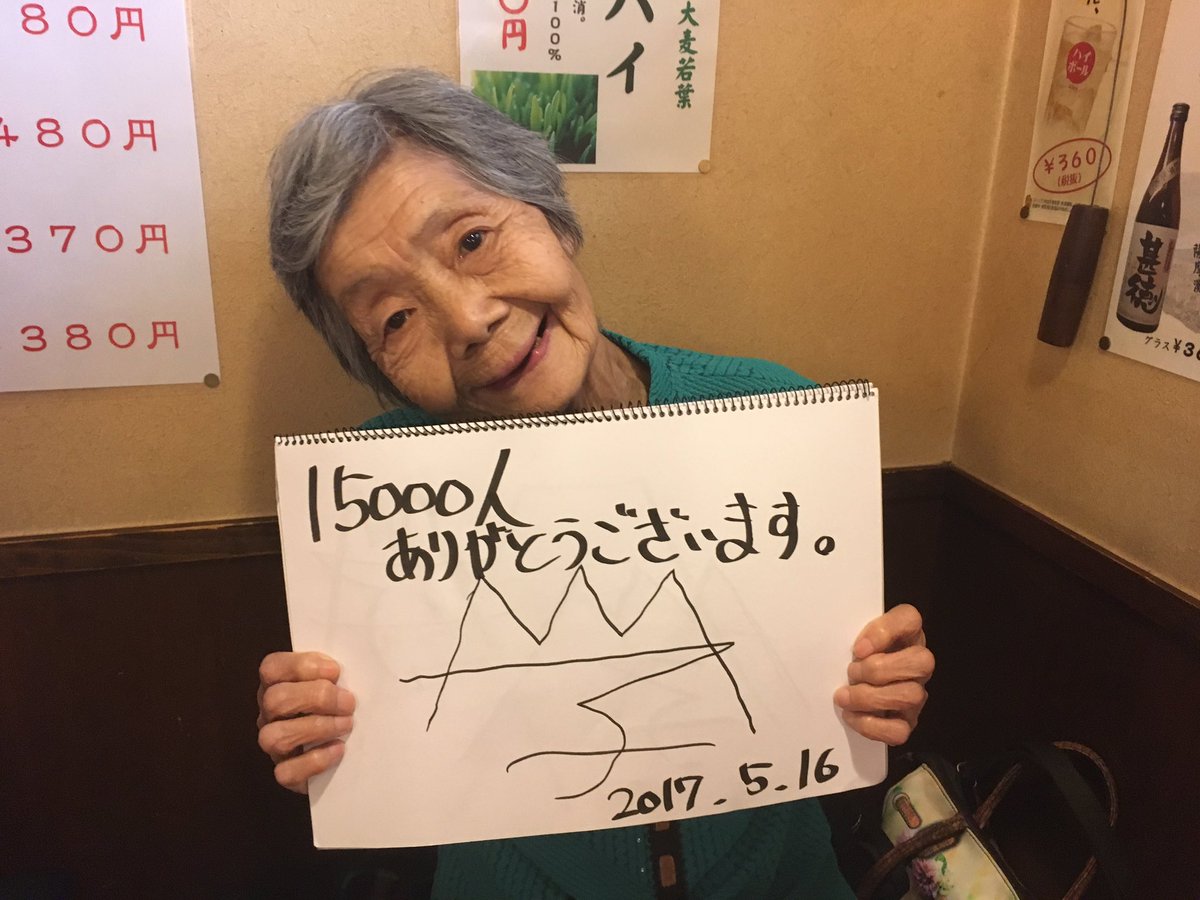 80円
480円
370円
380円
大麦若葉
ハイ
消。
100%
0円
ハイボール
¥360
(税抜)
甚徳
グラス¥3
15000人
ありがとうございます。
2017.5.16